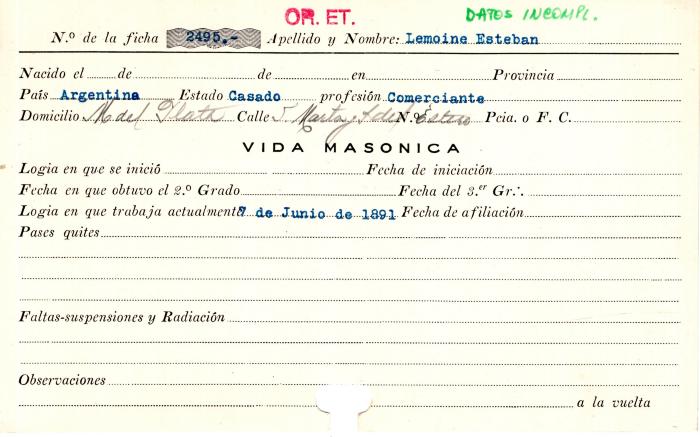 OR. ET. DATOS INCOMPL.
N.º de la ficha 2495.- Apellido y Nombre: Lemoine Esteban
Nacido el de de en Provincia
País Argentina Estado Casado profesión Comerciante
Domicilio M del Plata Calle S. Martin y S del Estero N.º Pcia. o F. C.
VIDA MASONICA
Logia en que se inició Fecha de iniciación
Fecha en que obtuvo el 2.º Grado Fecha del 3.er Gr∴
Logia en que trabaja actualmente 7 de Junio de 1891 Fecha de afiliación
Pases quites
Faltas-suspensiones y Radiación
Observaciones
a la vuelta